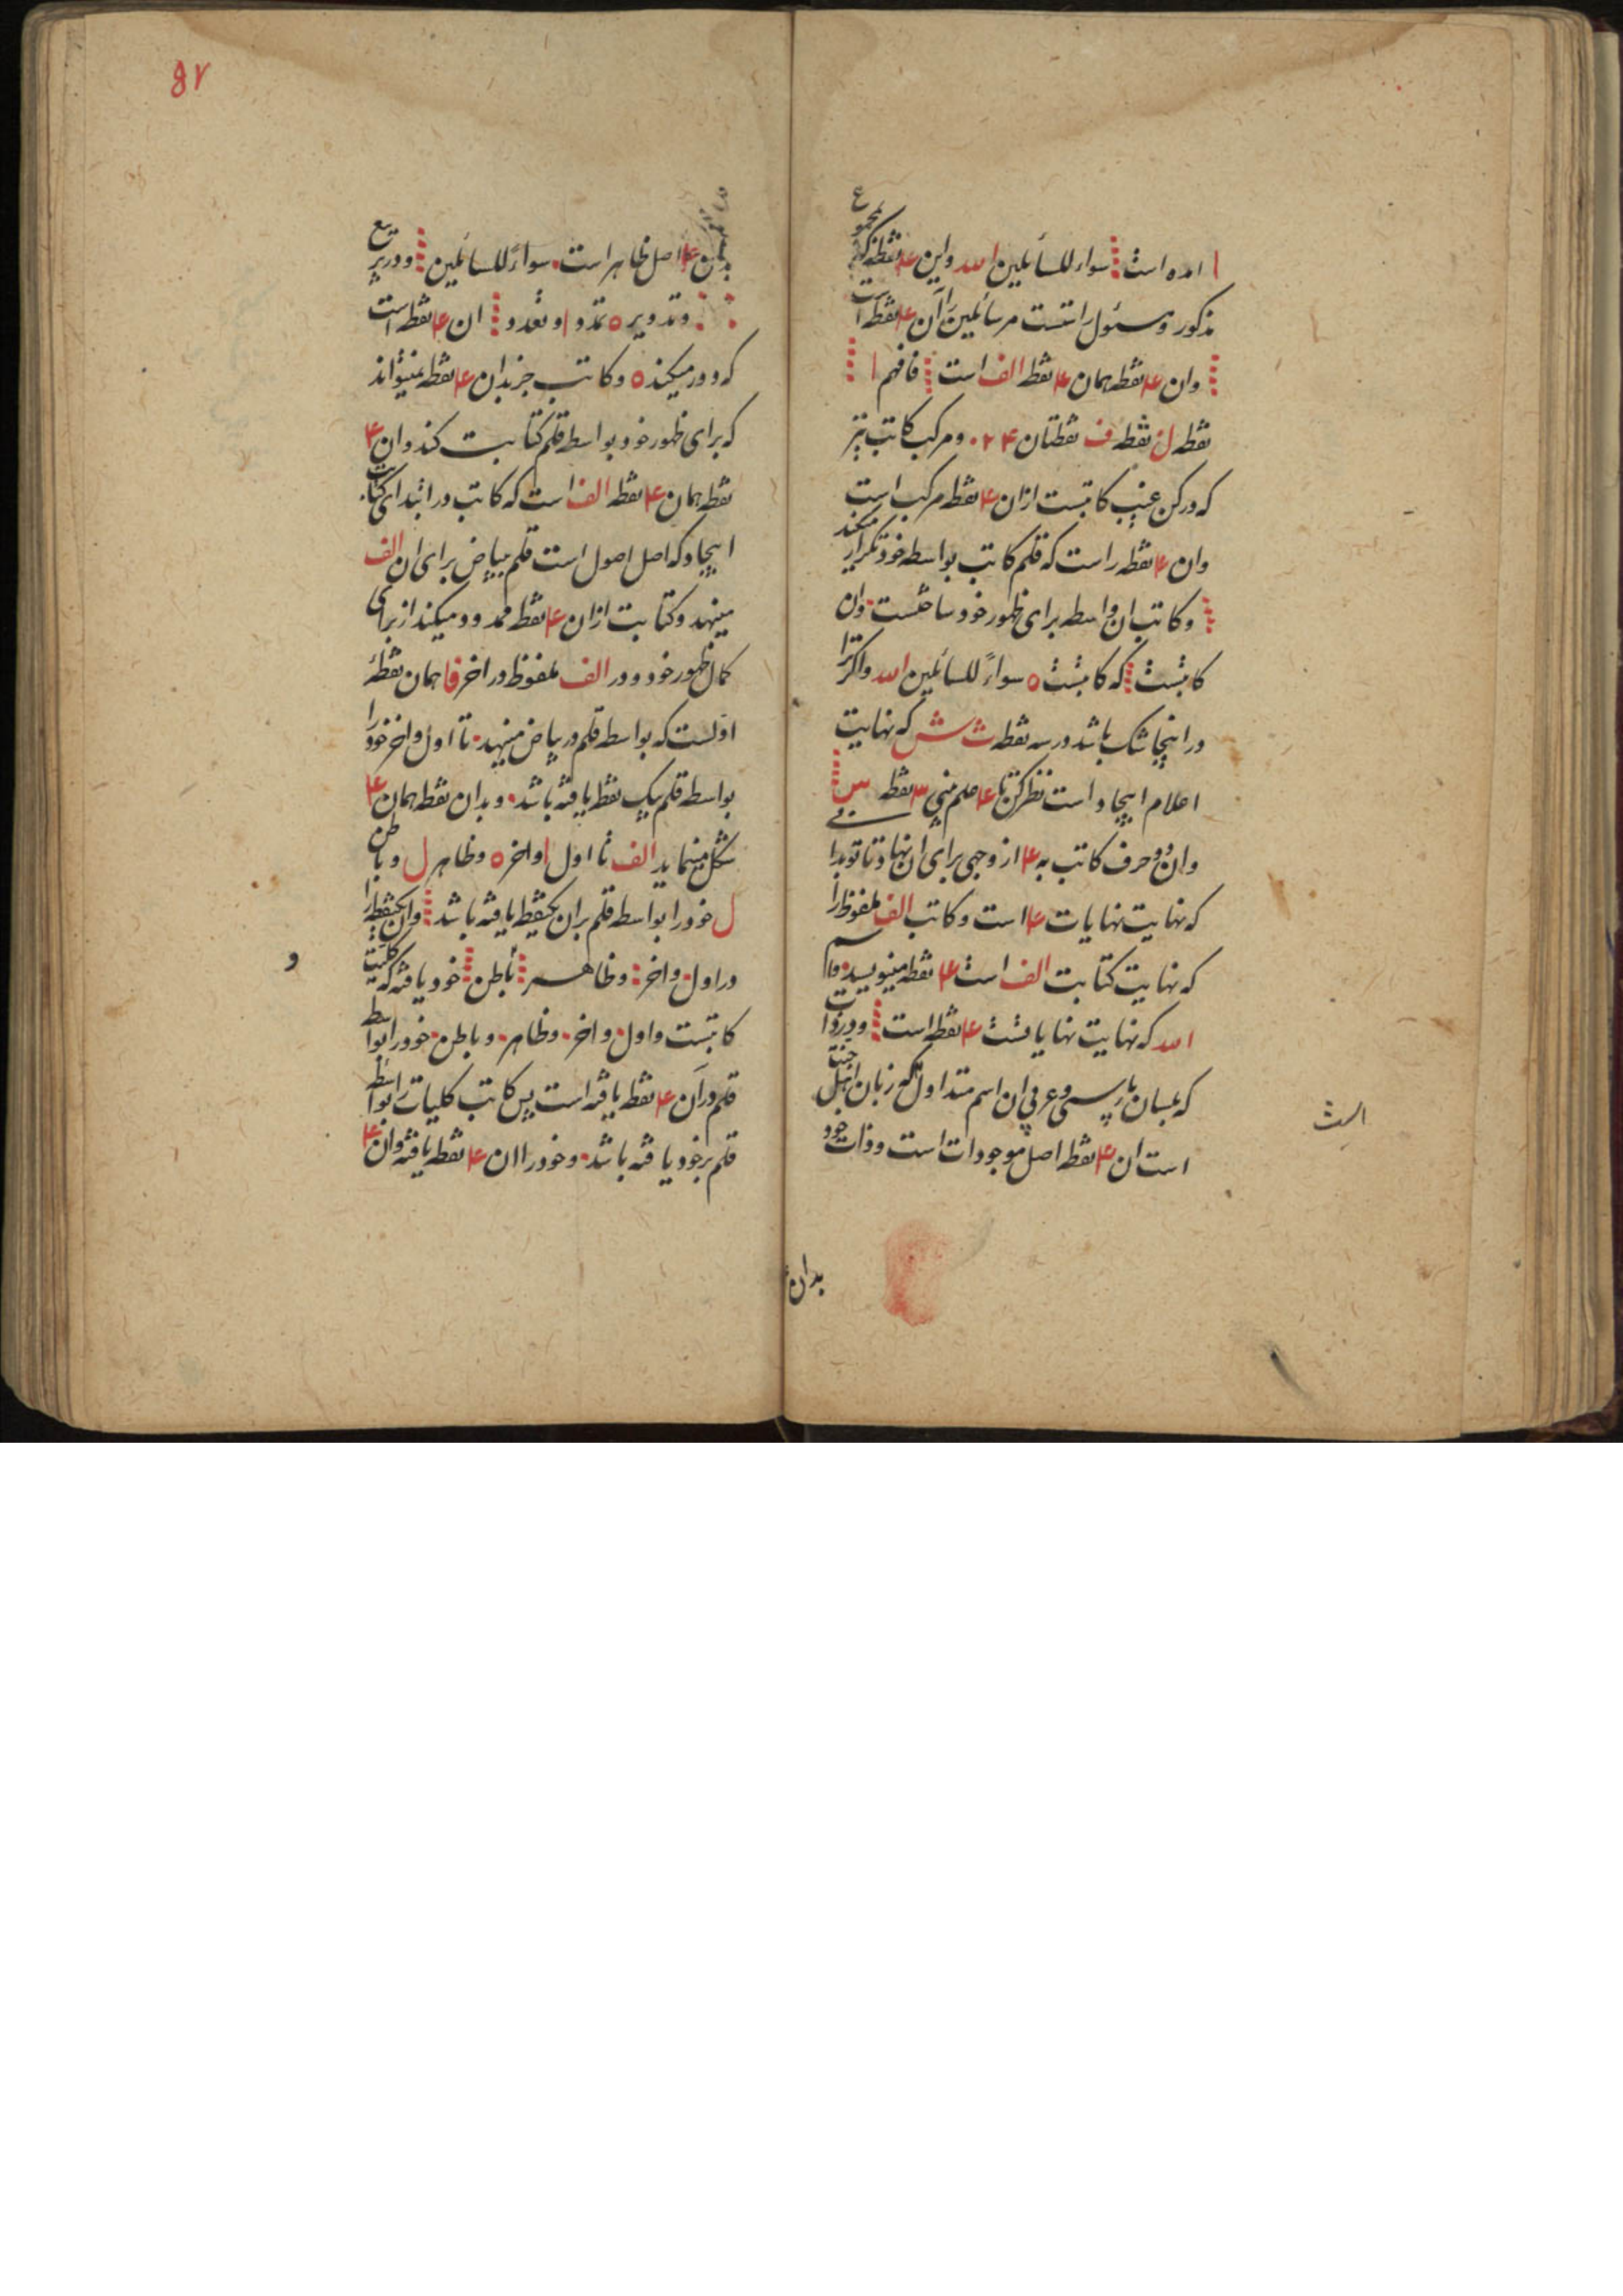 ا امده است سواء للسائلین الله واین ۴ نقطه که مجموع
مذکور ومسئول راتست مر سائلین را آن ۴ نقطه است
وان ۴ نقطه همان ۴ نقطه الف است فافهم ا
نقطه ل نقطه ف نقطتان ۲۴۰ ومرکب کاتب نیز
که در کن غیب کاتبست ازان ۴ نقطه مرکب است
وان ۴ نقطه راست که قلم کاتب بواسطه خود تکرار میکند
وکاتب ان واسطه برای ظهور خود ساختست وان
کاتبست که کاتبست ه سواءً للسائلین الله واکر ترا
در اینجا شک باشد در سه نقطه ث ش که نهایت
اعلام ایجاد است نظر کن تا ۴ علم ۳ نقطه س
وان دو حرف کاتب به ۴ از وجهی برای ان نهاد تا تو بدا
که نهایت نهایات ۴ است وکاتب الف ملفوظ را
که نهایت کتابت الف است ۴ نقطه مینویسد واسم
الله که نهایت نهایاتست ۴ نقطه است ودر ذات
که بلسان پارسی وعربی ان اسم متداول که زبان اهل جنت
است ان ۴ نقطه اصل موجودات است وذات خود
الث
بدان
۸۷
بدان ۴ اصل ظاهر است سواءً للسائلین ودر تربیع
وتدویر ه تمدد ا وتعدد ان ۴ نقطه است
که دور میکند ه وکاتب جز بدان ۴ نقطه نمیتواند
که برای ظهور خود بواسطه قلم کتابت کند وان ۴
نقطه همان ۴ نقطه الف است که کاتب در ابتدای کتابت
ایجاد که اصل اصول است قلم بیاض برای ان الف
مینهد وکتابت ازان ۴ نقطه ممدود میکند از برای
کمال ظهور خود ودر الف ملفوظ در اخر فا همان نقطهٔ
اولست که بواسطه قلم در بیاض مینهد تا اول واخر خود را
بواسطه قلم بیک نقطه یافته باشد وبدان نقطه همان ۴
شکل مینماید الف تا اول ا واخر ه وظاهر ل وباطن
ل خود را بواسطه قلم بران یکنقطه یافته باشد وان یکنقطه را
در اول واخر وظاهر باطن خود یافته که کلیت
و
کاتبست واول واخر وظاهر وباطن خود را بواسطه
قلم در آن ۴ نقطه یافته است پس کاتب کلیات را بواسطه
قلم بر خود یافته باشد وخود را ان ۴ نقطه یافته وان ۴